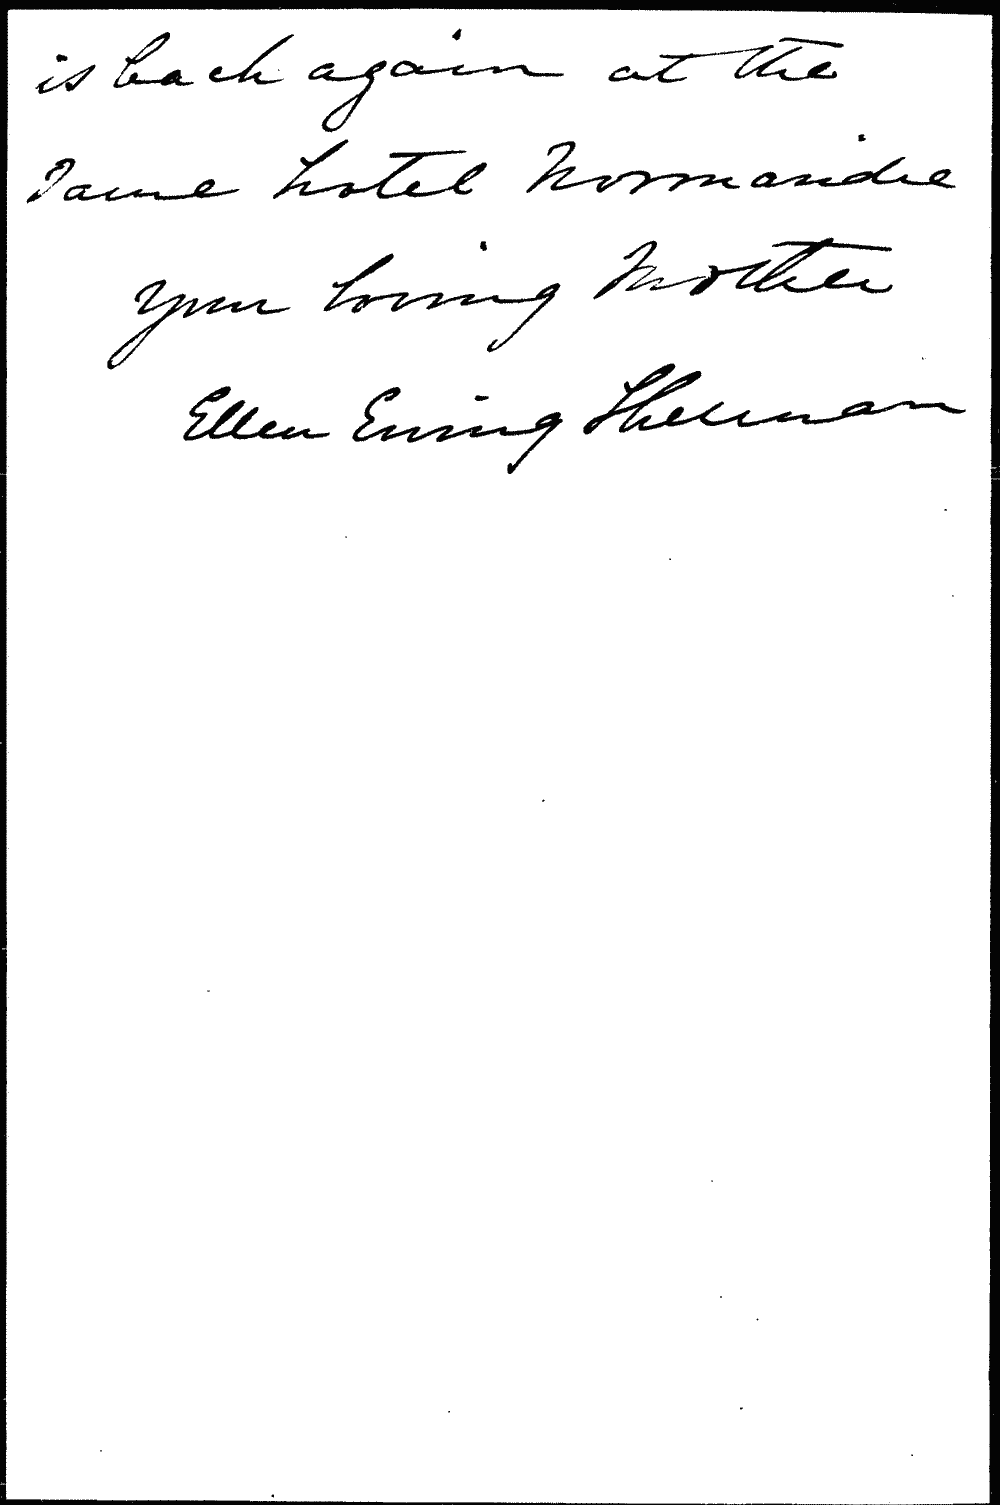 is back again at the
same hotel Normandie
Your loving Mother
Ellen Ewing Sherman